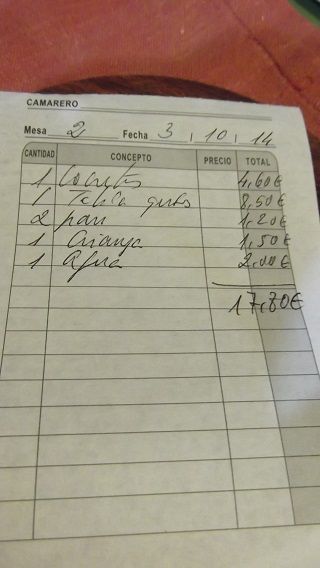 CAMARERO
Mesa 2 Fecha 3 / 10 / 14
CANTIDAD CONCEPTO PRECIO TOTAL
1 4,60€
1 Tabla 8,50€
2 pan 1,20€
1 Crianza 1,50€
1 Agua 2,00€
17,80€